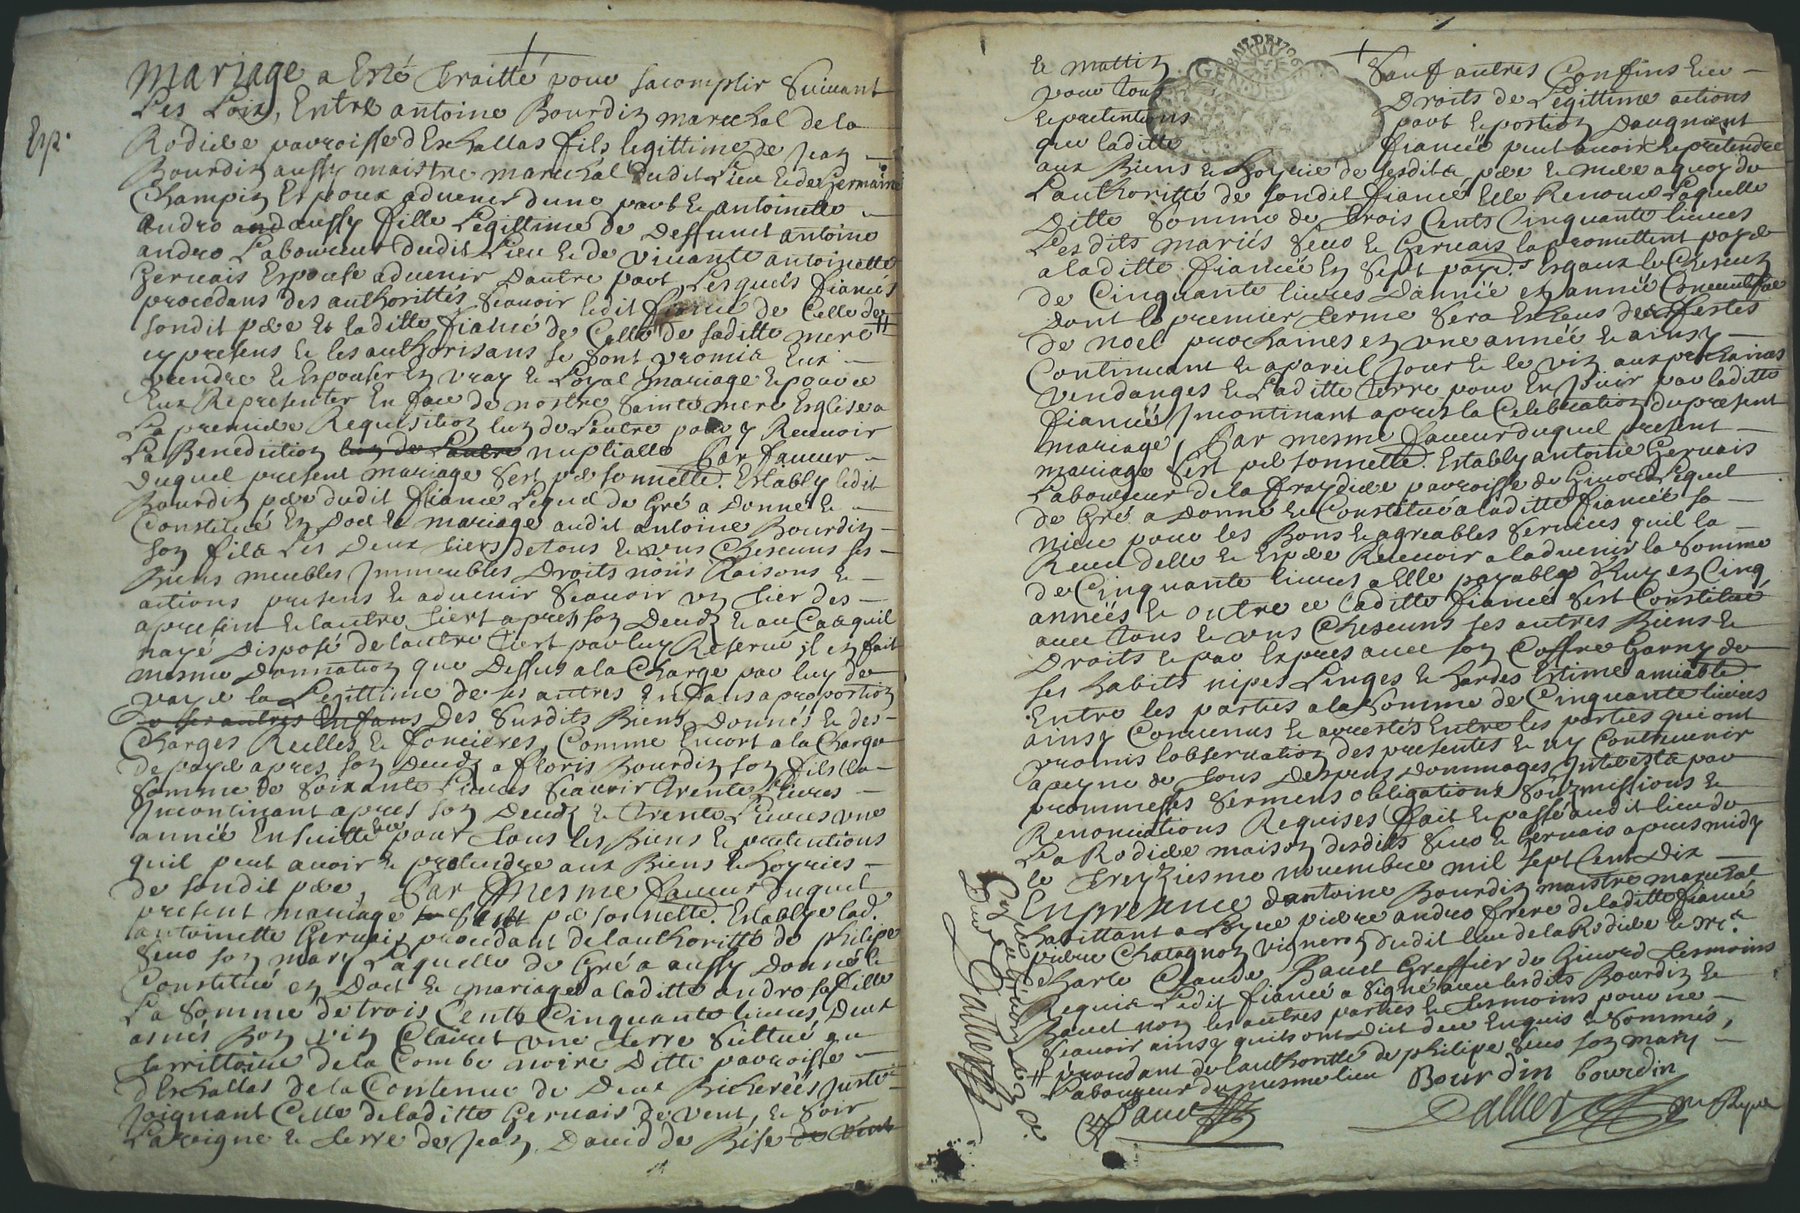 Exp.
Mariage a Esté Traitté pour sacomplir Suivant
Les Loix, Entre antoine Bourdin marechal de la
Rodiere parroisse d'Eschallas fils legittime de Jean
Bourdin aussy maistre marechal dudit Lieu & de Germaine
Champin Espoux advenir dune part & antoinette
andro and aussy fille Legittime de deffunct antoine
andro Laboureur dudit Lieu & de vivante antoinette
Gervais Espouse advenir dautre part Lesquels fiancés
procedans des authorittés scavoir ledit fiancé de Celle de
sondit pere Et laditte fiancé de Celle de saditte mere #
cy presens & les authorisans se sont promis Eux
prendre & Espouser En vray & Loyal mariage & pour ce
Eux Representer En face de nostre Sainte mere Esglise a
La premiere Requisition lun de Lautre pour y Recevoir
La Benediction lun de Lautre nuptialle Par faveur
duquel present mariage sest personnelle. Estably ledit
Bourdin pere dudit fiancé Lequel de Gré a donné &
Constitué En Dot & mariage audit antoine Bourdin
son fils Les deux tiers de tous & uns Chescuns ses
Biens meubles Immeubles Droits noms Raisons &
actions presens & advenir scavoir un tier des
apresent & lautre tiert apres son Deudz & au Cas quil
naye disposé de lautre tiert par luy Reservé il en fait
mesme donnation que dessus a la Charge par luy de
payé la Legittime de ses autres Enfans a proportion
de ses autres Enfans Des susdits Biens Donnés & des
Charges Reelles & foncieres, Comme Encort a la Charge
de payé apres son Deudz a floris Bourdin son fils la
somme de soixante Livres scavoir trente Livres
Incontinant apres son Deudz & trente Livres une
année Ensuitte pour tous les Biens & pretentions
quil peut avoir & pretendre aux Biens & hoyries
de sondit pere, Par Mesme faveur duquel
present mariage sest personnelle. Establye lad.
antoinette Gervais procedant de lauthoritté de philipe
Seuo son mary Laquelle de Gré a aussy donné &
Constitué en Dot & mariage a laditte andro sa fille
La somme de trois Cents Cinquante livres deux
asnés Bon vin Clairet une terre sittué au
territtoire de la Combe noire Ditte parroisse
d'Eschallas de la Contenue de deux Bicherées Juste
Joignant Celle de laditte Gervais de vent, & soir
La vigne & terre de Jean David de Bise de vent
& mattin Sauf autres Confins &
pour tous Droits de Legittime actions
& pretentions part & portion daugment
que laditte fiancée peut avoir & pretendre
aux Biens & hoyrie de sesdits pere & mere a quoy de
Lauthoritté de sondit fiancé Elle Renonce Laquelle
Ditte somme de trois Cents Cinquante livres
Lesdits mariés Seuo & Gervais la promettent payé
a laditte fiancée En sept payes Esgaux & Chescun
de Cinquante livres d'année en année Consecutifve
dont le premier terme sera Escheus des festes
de noel prochaines en une année & ainsy
Continuant & apareil Jour & le vin aux prochaines
vendanges & Laditte terre pour En Jouir par laditte
fiancée Incontinant apres la Celebration du present
mariage Par mesme faveur duquel present
mariage sest personnelle. Estably antoine Gervais
Laboureur de la fraydiere parroisse de Givors Lequel
de Gré a donné & Constitué a laditte fiancée sa
niece pour les Bons & agreables services quil la
Receu delle & Espere Recevoir a ladvenir la somme
de Cinquante livres a Elle payable d'huy en Cinq
années & outre ce laditte fiancée sest Constitué
avec tous & uns Chescuns ses autres Biens &
Droits & par Expres avec son Coffre Garny de
ses habits nipes Linges & hardes Estimé amiable
Entre les parties a la somme de Cinquante livres
ainsy Convenus & arrestés Entre les parties qui ont
promis lobservation des presentes & ny Contrevenir
a peyne de tous Despens dommages Interests par
promesses sermens obligations soubmissions &
Renonciations Requises fait & passé audit lieu de
La Rodiere maison desdits Seuo & Gervais apres midy
le treyziesme novembre mil sept Cent Dix
En presence d'antoine Bourdin maistre marechal
habittant a pierre andro frere de laditte fiancé
pierre Chatagnon vigneron dudit lieu de la Rodiere & Mre.
Charle Claude Pauet Greffier de Givord tesmoins
Requis Ledit fiancé a signé avec lesdits Bourdin &
Pauet non les autres parties & tesmoins pour ne
scavoir ainsy quils ont dit de ce Enquis & sommés,
# procedant de lauthoritté de philipe Seuo son mary
Laboureur du mesme lieu Bourdin bourdin
Pauet Dallier